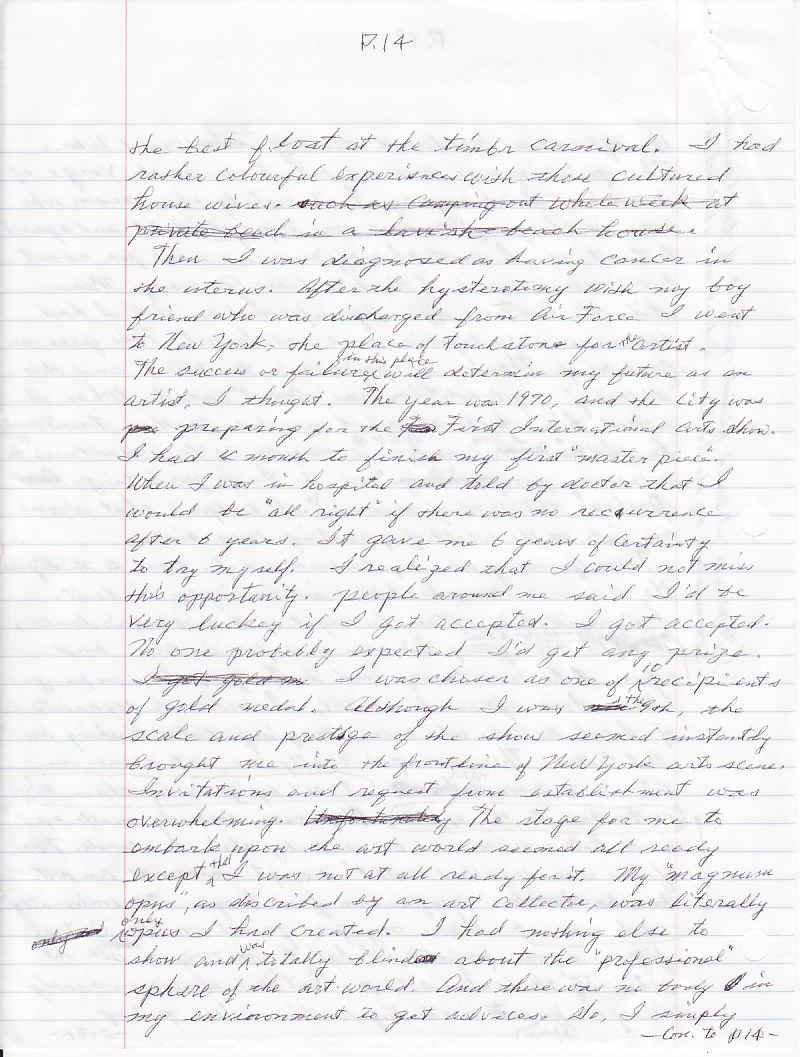 P.14
the best float at the timbr carnival. I had
rather colourful experiences with those cultured
house wives. such as camping out whole week at
private beach in a lavish beach house.
Then I was diagnosed as having cancer in
the uterus. After the hysteretomy with my boy
friend who was discharged from Air Force I went
to New York, the place of touchstone for the artist.
The success or failure in this place will determin my future as an
artist, I thought. The year was 1970, and the City was
preparing for the First International Arts Show.
I had 4 month to finish my first "master piece".
When I was in hospital and told by doctor that I
would be "all right" if there was no recurrence
after 6 years. It gave me 6 years of certainty
to try myself. I realized that I could not miss
this opportunity. people around me said I'd be
very luckey if I got accepted. I got accepted.
No one probably expected I'd get any prize.
I got gold m I was chosen as one of 10 recipients
of gold medal. Although I was the 9th, the
scale and prestige of the show seemed instantly
brought me into the frontline of New York arts scene.
Invitations and request from establishment was
overwhelming. Unfortunately The stage for me to
embark upon the art world seemed all ready
except that I was not at all ready for it. My "magnum
opus", as discribed by an art collector, was literally
only opus I had created. I had nothing else to
show and was totally blind about the "professional"
sphere of the art world. And there was no body in
my environment to get advices. So, I simply
—Con. to P14—